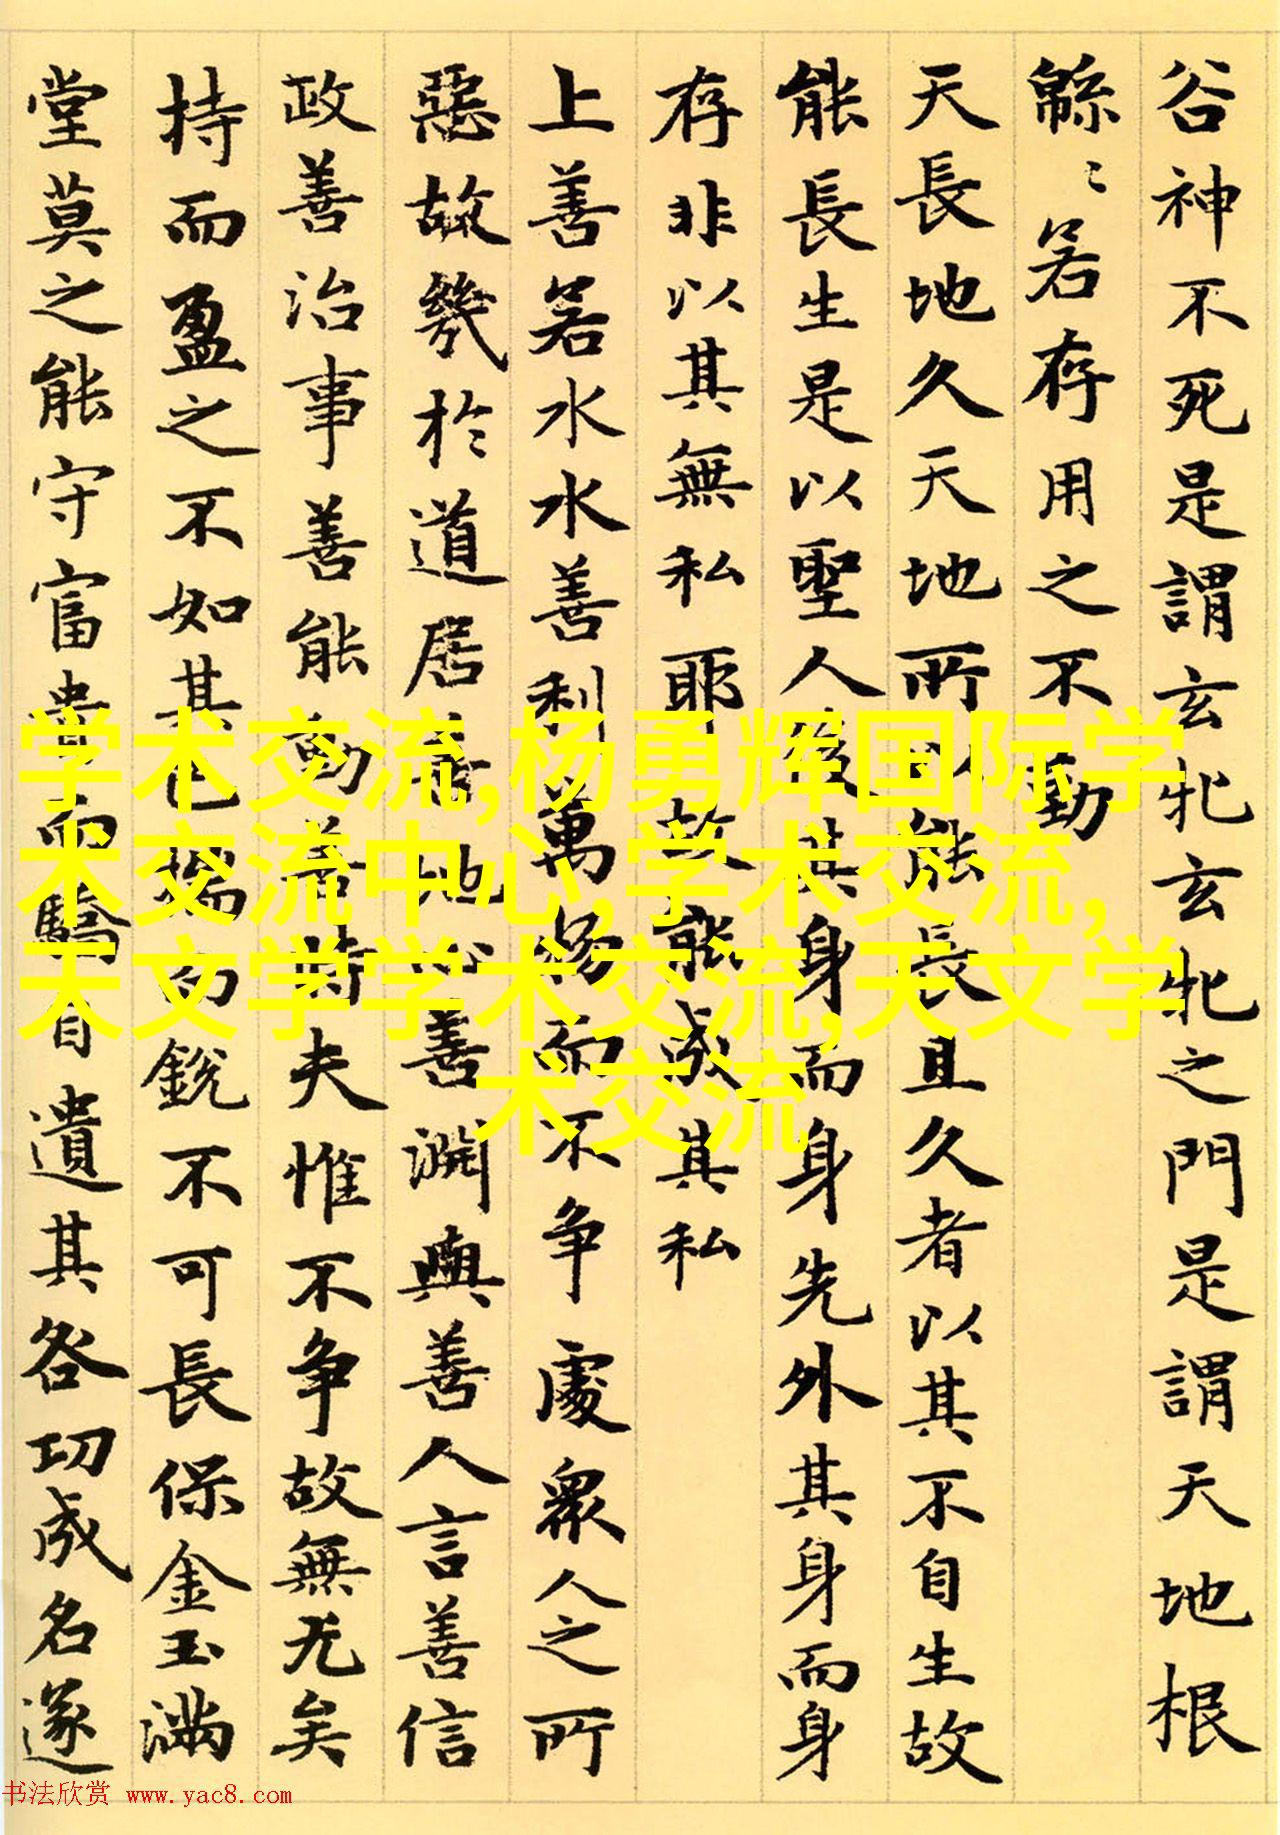 谷神不死是謂玄牝玄牝之門是謂天地根
緜〻若存用之不勤
天長地久天地所以能長且久者以其不自生故
能長生是以聖人後其身而身先外其身而身
存非以其無私耶故能成其私
上善若水水善利萬物而不争處衆人之所
惡故幾於道居善地心善渊與善人言善信
政善治事善能動善時夫惟不争故無尤矣
持而盈之不如其已揣而銳不可長保金玉滿
堂莫之能守富貴而驕自遺其咎功成名遂
学术交流,杨勇辉国际学
术交流中心,学术交流,
天文学学术交流,天文学
术交流
书法欣赏 www.yac8.com